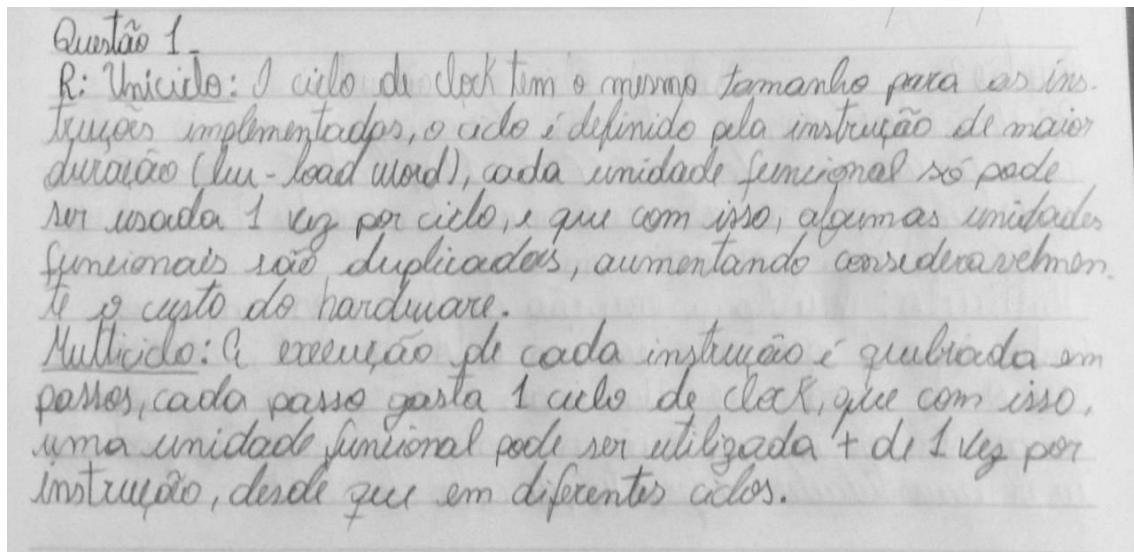 Questão 1_
R: Uniciclo: O ciclo de clock tem o mesmo tamanho para as ins-
truções implementadas, o ciclo é definido pela instrução de maior
duração (lw - load word), cada unidade funcional só pode
ser usada 1 vez por ciclo, e que com isso, algumas unidades
funcionais são duplicadas, aumentando consideravelmen-
te o custo do hardware.
Multiciclo: A execução de cada instrução é quebrada em
passos, cada passo gasta 1 ciclo de clock, que com isso,
uma unidade funcional pode ser utilizada + de 1 vez por
instrução, desde que em diferentes ciclos.